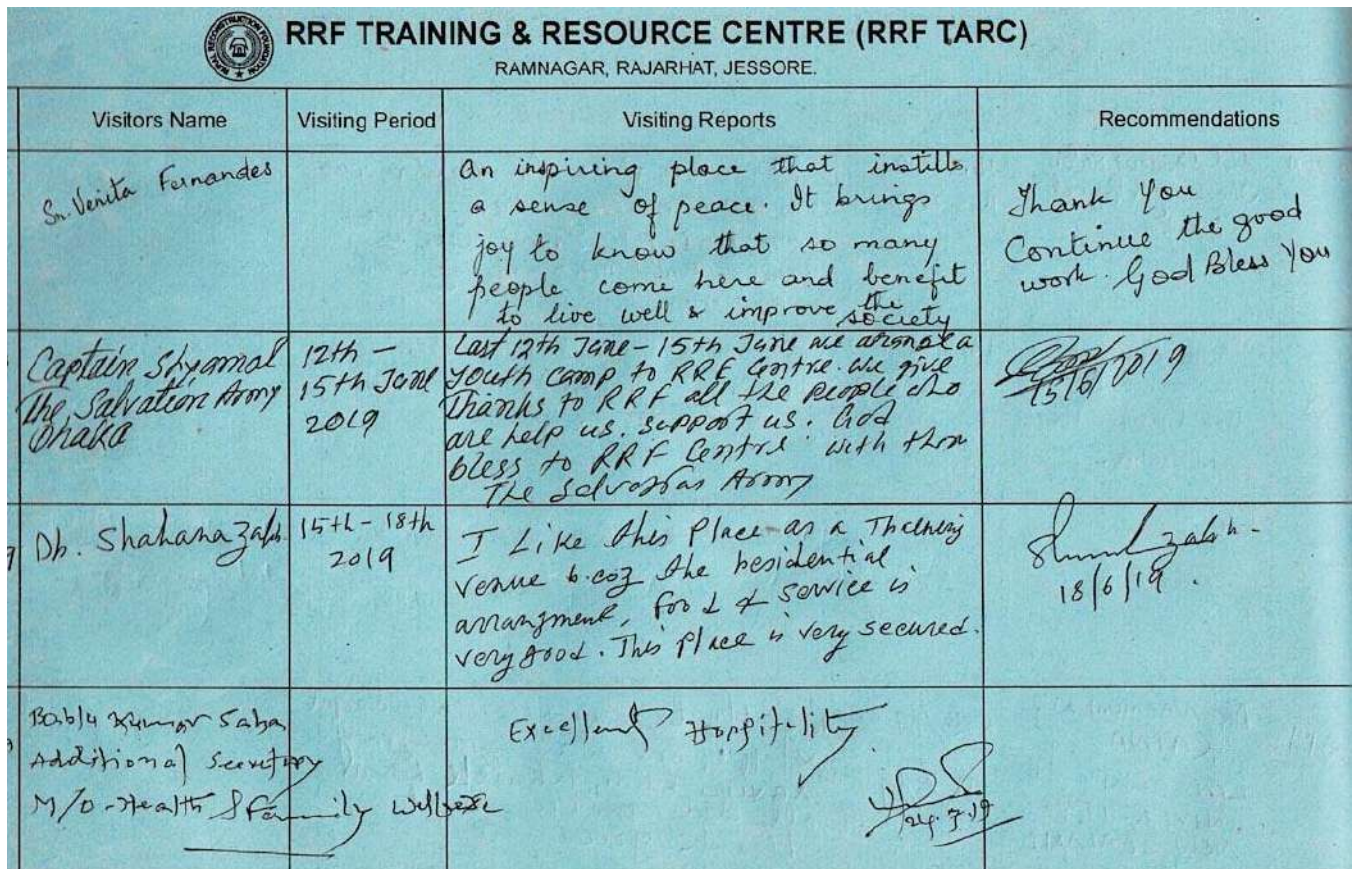 RURAL RECONSTRUCTION FOUNDATION
RRF TRAINING & RESOURCE CENTRE (RRF TARC)
RAMNAGAR, RAJARHAT, JESSORE.
Visitors Name Visiting Period Visiting Reports Recommendations
Sr. Venita Fernandes
An inspiring place that instills
a sense of peace. It brings
joy to know that so many
people come here and benefit
to live well & improve the
society
Thank You
Continue the good
work. God Bless You
Captain Shyamal
The Salvation Army
Dhaka
12th -
15th June
2019
Last 12th June - 15th June we a
youth camp to RRF Centre. we give
Thanks to RRF all the people who
are help us. support us. God
bless to RRF Centre with
The Army
15/6/2019
Dr. Shahana
15th - 18th
2019
I Like this Place as a
venue b.coz the residential
arrangment, food & service is
very good. This place is very secured.
18/6/19.
Bablu Kumar Saha
Additional Secretary
M/O Health & Family Welfare
Excellent Hospitality
24.7.19